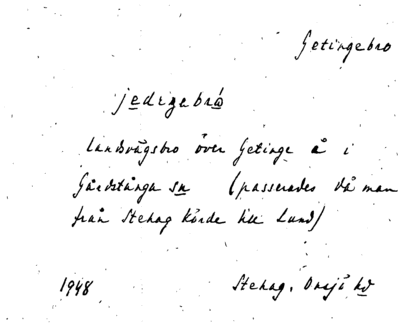 Getingebro
jedingebro
landsvägsbro över Getinge å i
Gårdstånga sn (passerades då man
från Stehag körde till Lund)
1948 Stehag, Onsjö hd